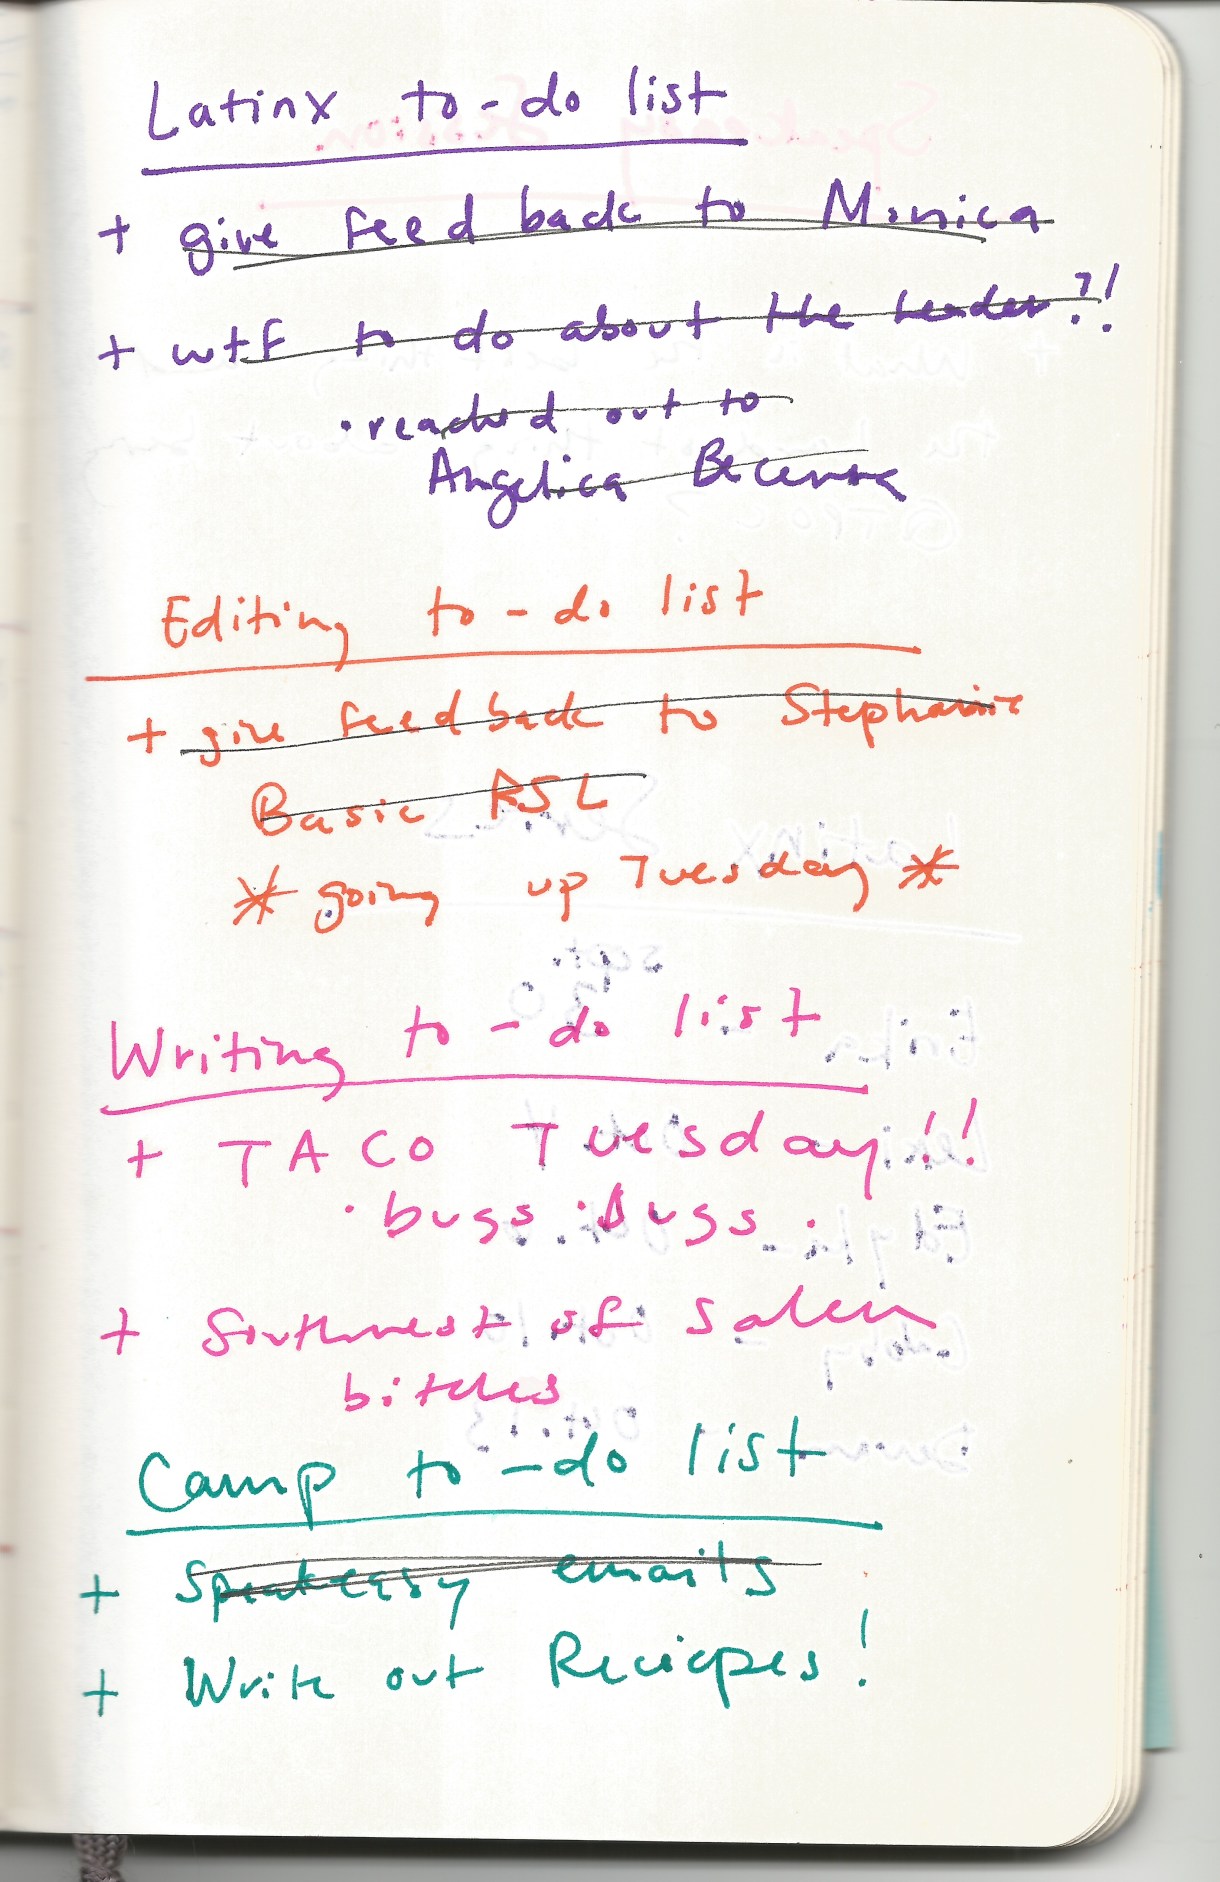 Latinx to-do list
+ give feedback to Monica
+ wtf to do about the header?!
• reached out to
Angelica Becerra
Editing to-do list
+ give feedback to Stephanie
Basic RSL
* going up Tuesday *
Writing to-do list
+ TACO Tuesday!!
• bugs bugs
+ Southwest of Salem
bitches
Camp to-do list
+ Speakeasy emails
+ Write out Reciepes!